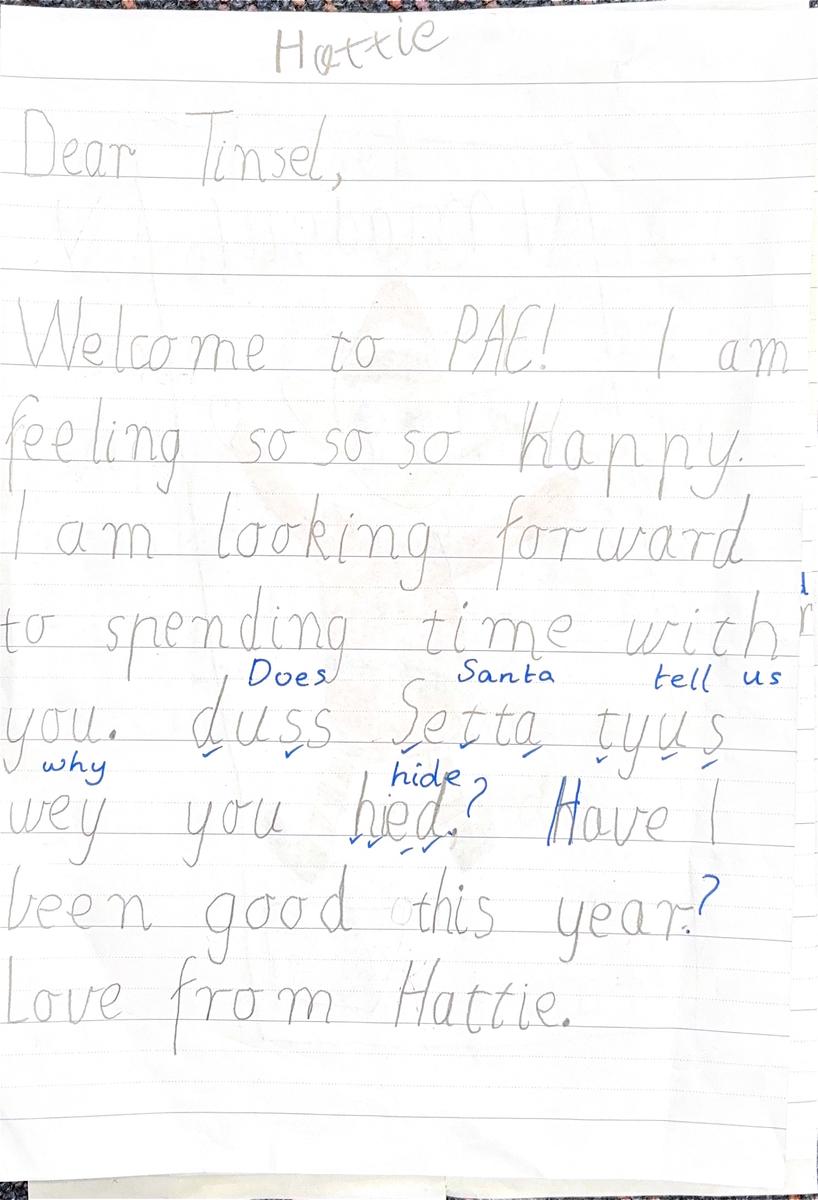 Hattie
Dear Tinsel,
Welcome to PAE! I am
feeling so so so happy.
I am looking forward
to spending time with
Does Santa tell us
you. duss Setta tyus
why hide
wey you hied.? Have I
been good this year.?
Love from Hattie.